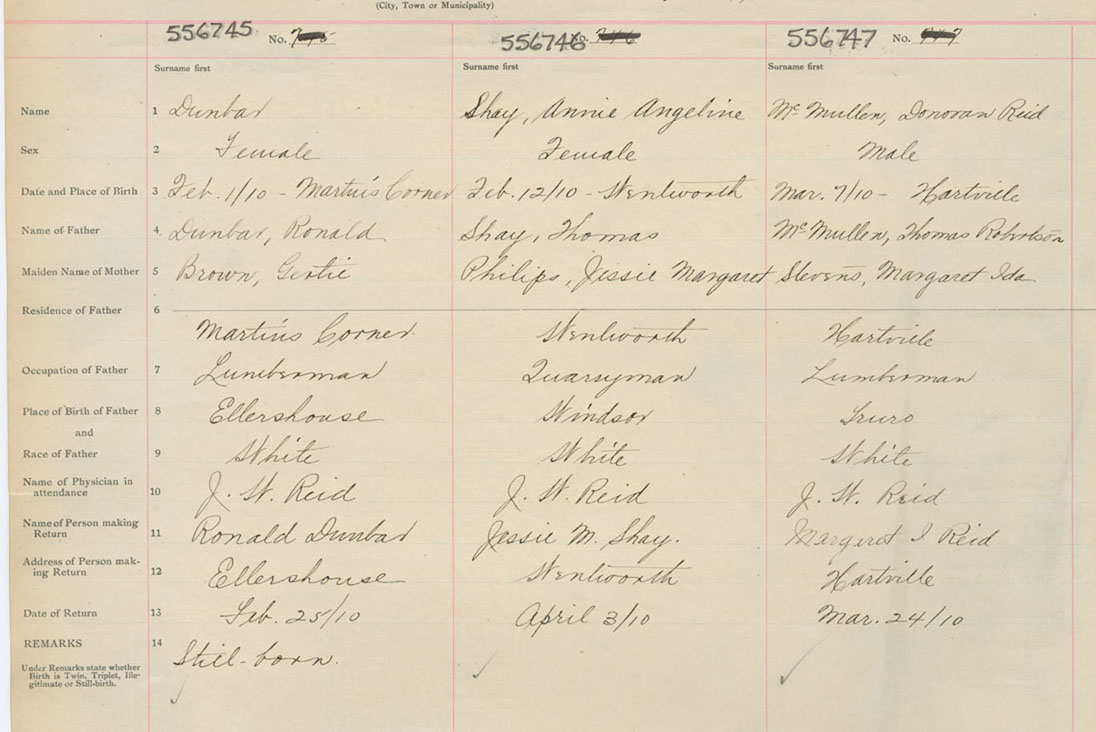 (City, Town or Municipality)
556745 No. 556746 No. 556747 No.
Surname first Surname first Surname first
Name 1 Dunbar Shay, Annie Angeline McMullen, Donovan Reid
Sex 2 Female Female Male
Date and Place of Birth 3 Feb. 1/10 - Martin's Corner Feb. 12/10 - Wentworth Mar. 7/10 - Hartville
Name of Father 4 Dunbar, Ronald Shay, Thomas McMullen, Thomas Robertson
Maiden Name of Mother 5 Brown, Gertie Philips, Jessie Margaret Stevens, Margaret Ida
Residence of Father 6
Martins Corner Wentworth Hartville
Occupation of Father 7 Lumberman Quarryman Lumberman
Place of Birth of Father 8 Ellershouse Windsor Truro
and
Race of Father 9 White White White
Name of Physician in
attendance 10 J. W. Reid J. W. Reid J. W. Reid
Name of Person making
Return 11 Ronald Dunbar Jessie M. Shay. Margaret I Reid
Address of Person mak-
ing Return 12 Ellershouse Wentworth Hartville
Date of Return 13 Feb. 25/10 April 3/10 Mar. 24/10
REMARKS 14
Still-born.
Under Remarks state whether
Birth is Twin, Triplet, Ille-
gitimate or Still-birth.